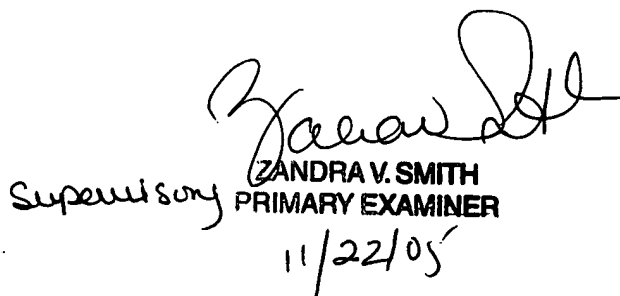 Zandra Smith
ZANDRA V. SMITH
Supervisory PRIMARY EXAMINER
11/22/05